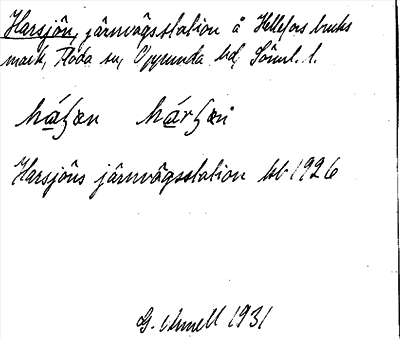 Harsjön, järnvägsstation å Hellefors bruks
mark, Floda sn, Oppunda hd, Söml. l.
Harsjöns järnvägsstation kb 1926
G. 1931